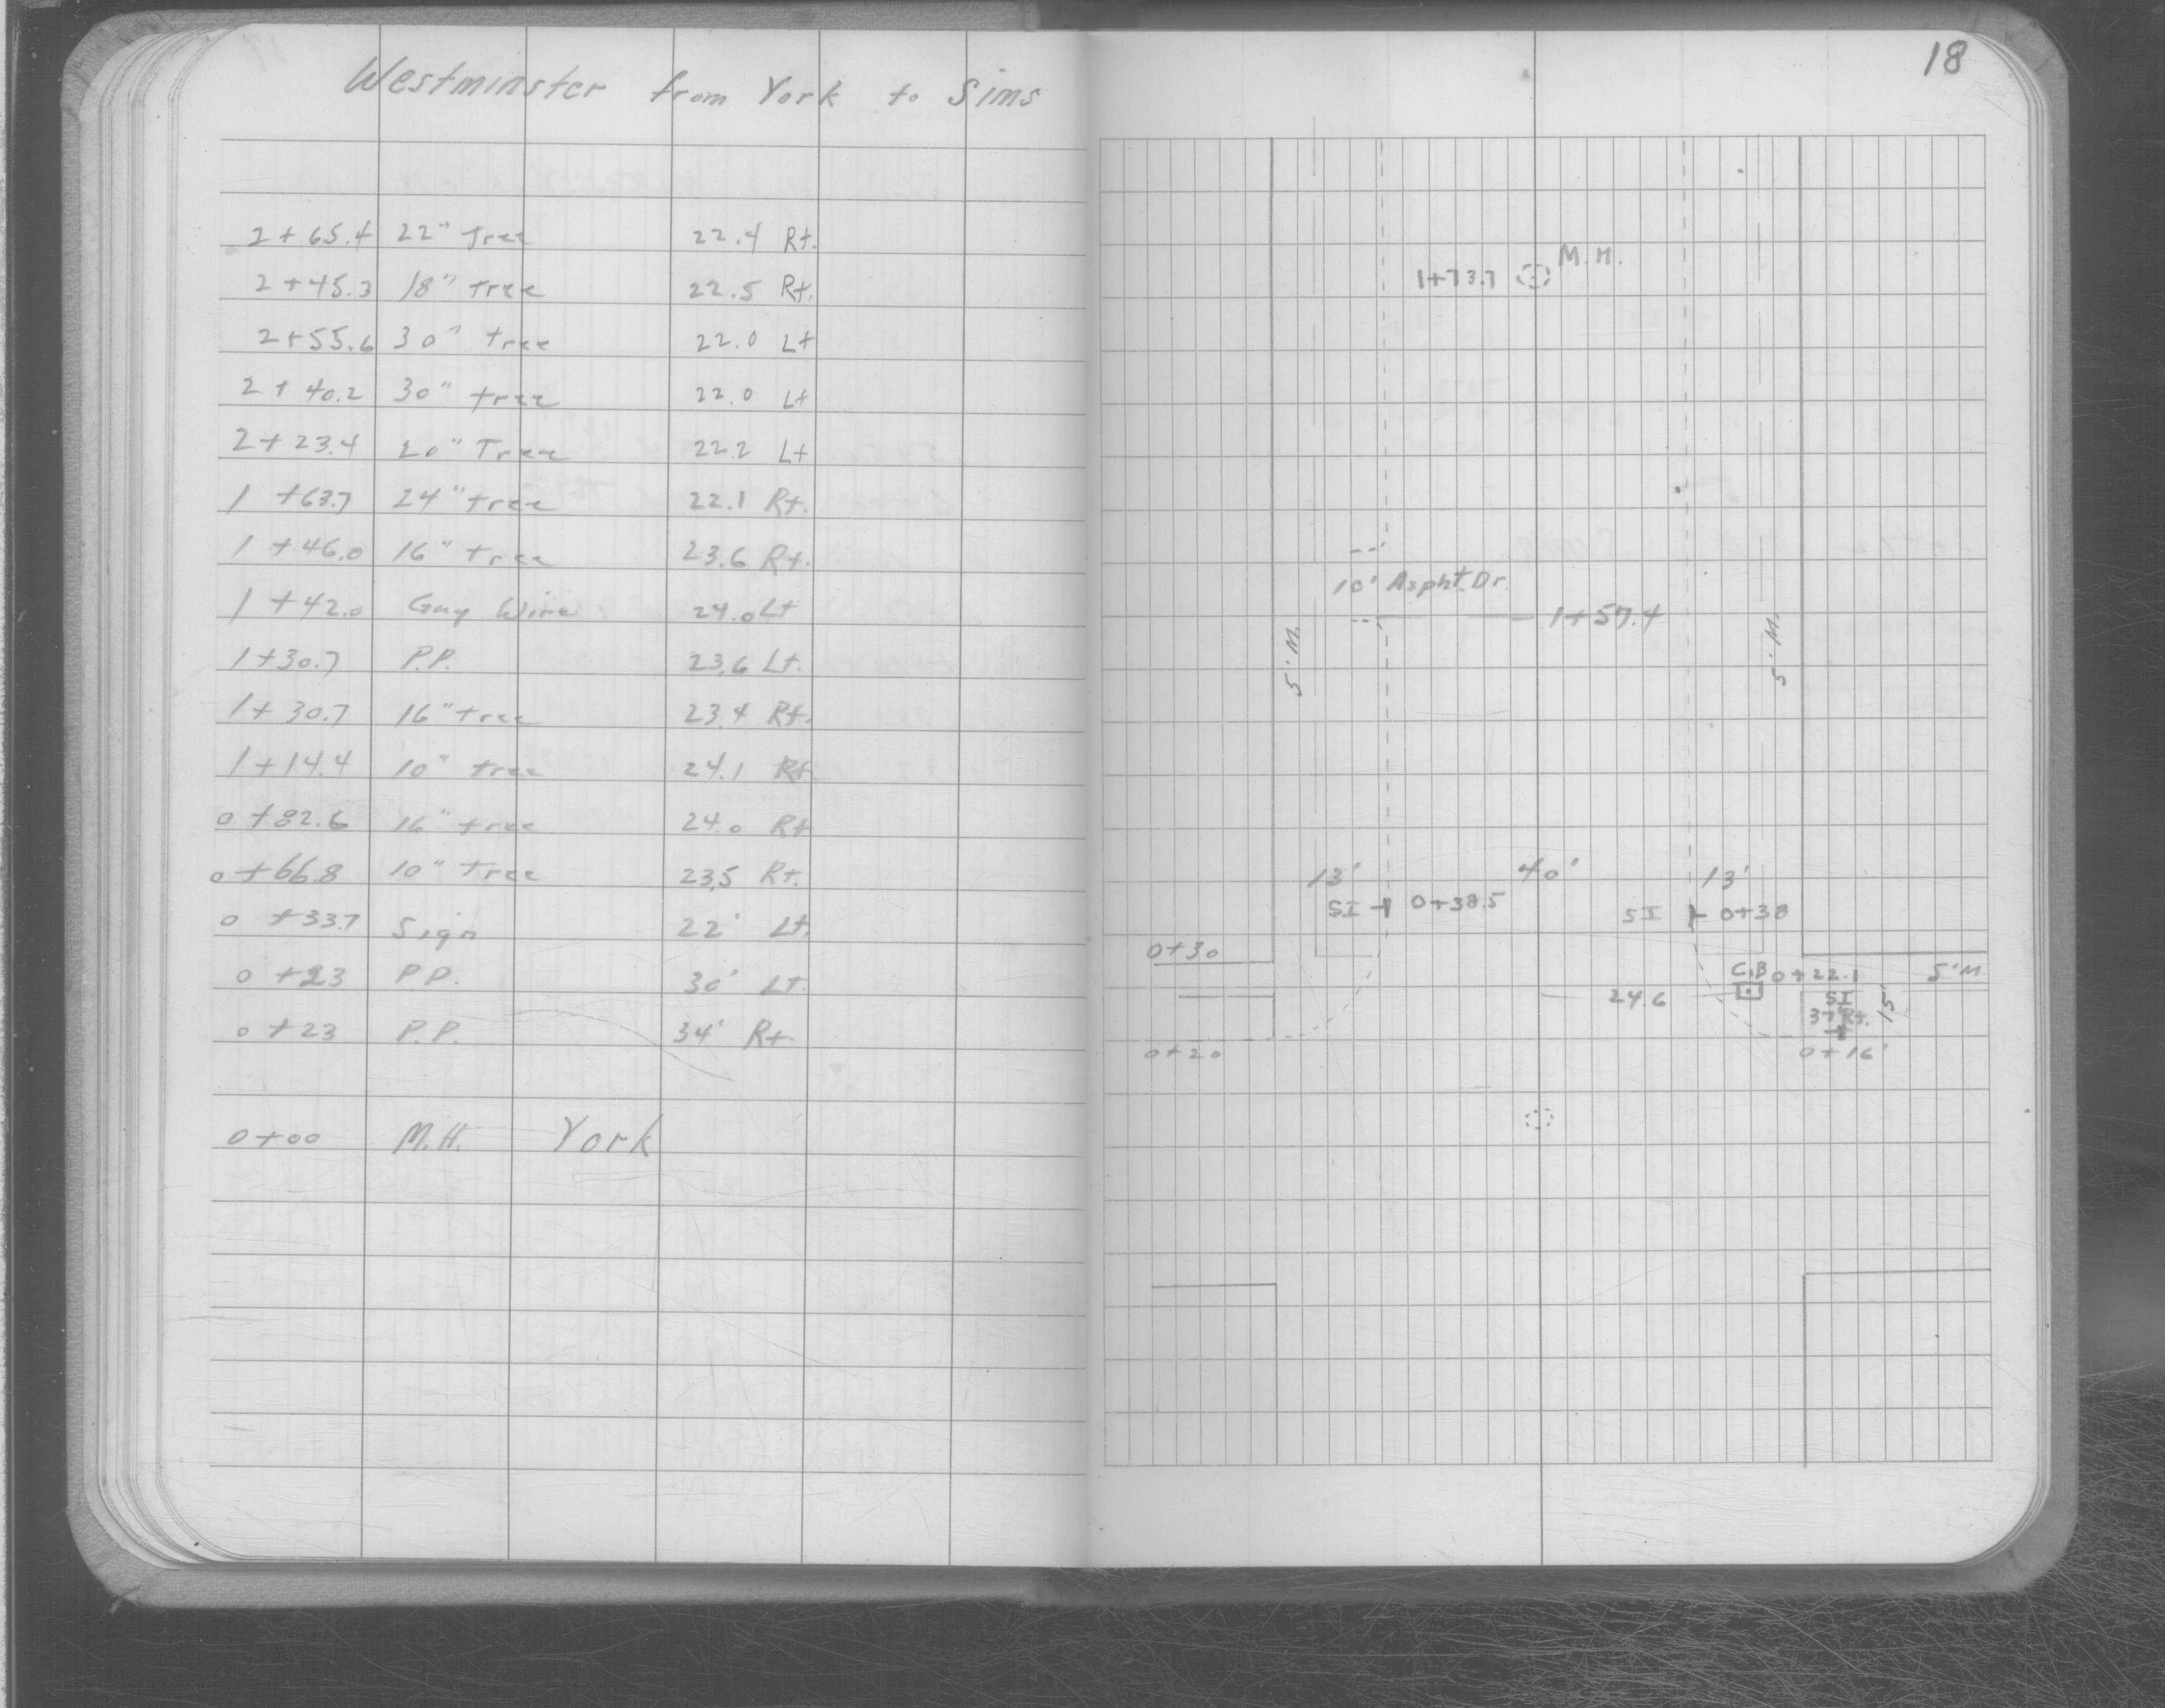 Westminster from York to Sims
2+65.4 22" Tree 22.4 Rt.
2+45.3 18" Tree 22.5 Rt.
2+55.6 30" tree 22.0 Lt
2+40.2 30" tree 22.0 Lt
2+23.4 20" Tree 22.2 Lt
1+63.7 24" tree 22.1 Rt.
1+46.0 16" tree 23.6 Rt.
1+42.0 Guy Wire 24.0 Lt
1+30.7 P.P. 23.6 Lt.
1+30.7 16" tree 23.4 Rt.
1+14.4 10" tree 24.1 Rt
0+82.6 16" tree 24.0 Rt
0+66.8 10" Tree 23.5 Rt.
0+33.7 Sign 22' Lt.
0+23 P.P. 30' Lt.
0+23 P.P. 34' Rt.
0+00 M.H. York
18
M.H.
1+73.7
10' Aspht. Dr.
1+57.4
5' M.
5' M.
13' 40' 13'
SI 0+38.5 SI 0+38
0+30
C.B 0+22.1 5' M.
24.6 SI 15'
37' Rt.
0+20 0+16'